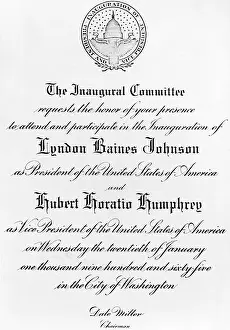 The Inaugural Committee
requests the honor of your presence
to attend and participate in the Inauguration of
Lyndon Baines Johnson
as President of the United States of America
and
Hubert Horatio Humphrey
as Vice President of the United States of America
on Wednesday the twentieth of January
one thousand nine hundred and sixty five
in the City of Washington
Dale Miller
Chairman